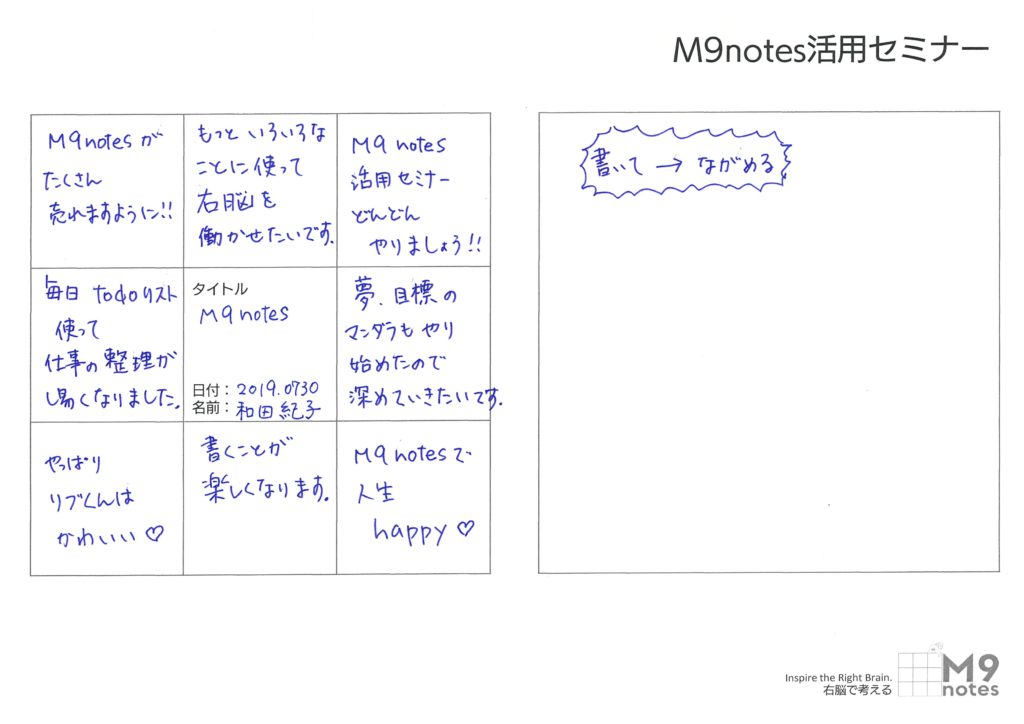 M9notes活用セミナー
M9notesが
たくさん
売れますように!!
もっといろいろな
ことに使って
右脳を
働かせたいです。
M9notes
活用セミナー
どんどん
やりましょう!!
毎日 todoリスト
使って
仕事の整理が
し易くなりました。
タイトル
M9notes
日付：2019.0730
名前：和田紀子
夢、目標の
マンダラもやり
始めたので
深めていきたいです。
やっぱり
リブくんは
かわいい♡
書くことが
楽しくなります。
M9notesで
人生
happy♡
書いて→ながめる
Inspire the Right Brain.
右脳で考える
M9
notes